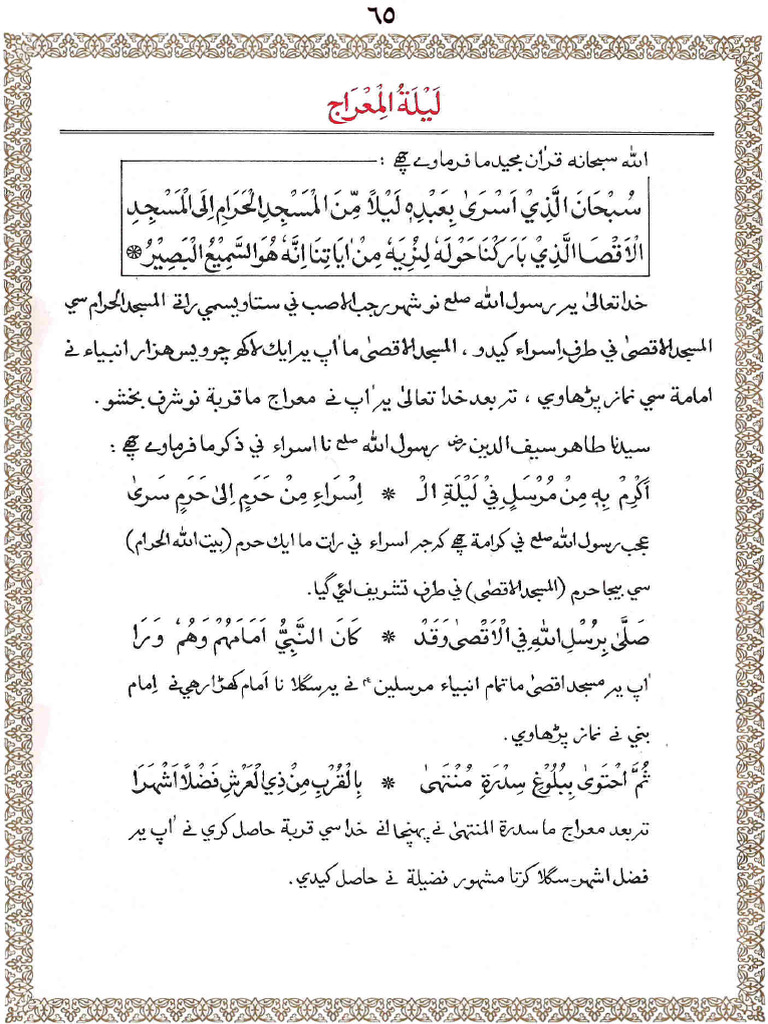 ٦٥
لَيْلَةُ الْمِعْرَاج
الله سبحانه قرأن مجيد ما فرماوے چھے :
سُبْحَانَ الَّذِيْ اَسْرَىٰ بِعَبْدِهٖ لَيْلًا مِّنَ الْمَسْجِدِ الْحَرَامِ اِلَى الْمَسْجِدِ
الْاَقْصَا الَّذِيْ بَارَكْنَا حَوْلَهٗ لِنُرِيَهٗ مِنْ اٰيَاتِنَا اِنَّهٗ هُوَ السَّمِيْعُ الْبَصِيْرُ *
خدا تعالىٰ يه رسول الله صلع نو شهر رجب الاصب ني ستاويسمي راتے المسجد الحرام سي
المسجد الاقصىٰ ني طرف اسراء كيدو ، المسجد الاقصىٰ ما اٰپ يه ايك لاكھ چوويس هزار انبياء نے
امامة سي نماز پڑهاوي ، ته بعد خدا تعالىٰ يه اٰپ نے معراج ما قربة نو شرف بخشو .
سيدنا طاهر سيف الدين رض رسول الله صلع نا اسراء ني ذكر ما فرماوے چھے :
اَكْرِمْ بِهٖ مِنْ مُرْسَلٍ فِيْ لَيْلَةِ الْـ * اِسْرَاءِ مِنْ حَرَمٍ اِلىٰ حَرَمٍ سَرىٰ
عجب رسول الله صلع ني كرامة چھے كه جه اسراء ني رات ما ايك حرم (بيت الله الحرام)
سي بيجا حرم (المسجد الاقصٰى) ني طرف تشريف لئي گيا.
صَلَّىٰ بِرُسْلِ اللهِ فِي الْاَقْصىٰ وَقَدْ * كَانَ النَّبِيُّ اَمَامَهُمْ وَهُمْ وَرَا
اٰپ يه مسجد اقصىٰ ما تمام انبياء مرسلين ع م نے يه سگلا نا اَمام كھڑا رهي نے اِمام
بني نے نماز پڑهاوي .
ثُمَّ احْتَوىٰ بِبُلُوْغِ سِدْرَةِ مُنْتَهىٰ * بِالْقُرْبِ مِنْ ذِي الْعَرْشِ فَضْلًا اَشْهَرَا
ته بعد معراج ما سدرة المنتهىٰ نے پهنچا انے خدا سي قربة حاصل كري نے اٰپ يه
فضل اشهر- سگلا كرتا مشهور فضيلة نے حاصل كيدي .